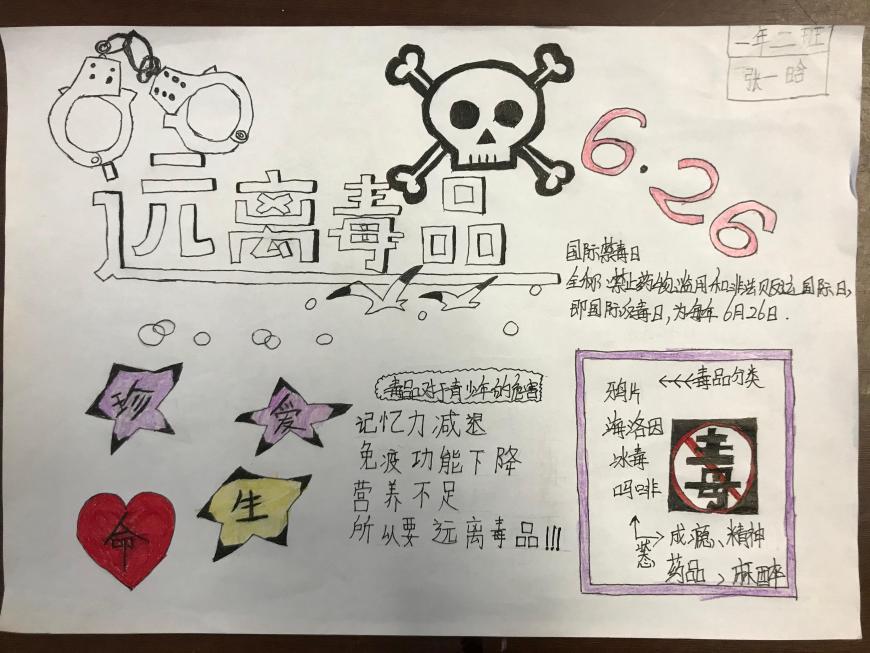 一年二班
张一晗
远离毒品
6.26
国际禁毒日
全称:禁止药物滥用和非法贩运国际日,
即国际反毒日,为每年6月26日.
珍
爱
生
命
毒品对于青少年的危害
记忆力减退
免疫功能下降
营养不足
所以要远离毒品!!!
毒品分类
鸦片
海洛因
冰毒
吗啡
毒
成瘾、精神
药品、麻醉